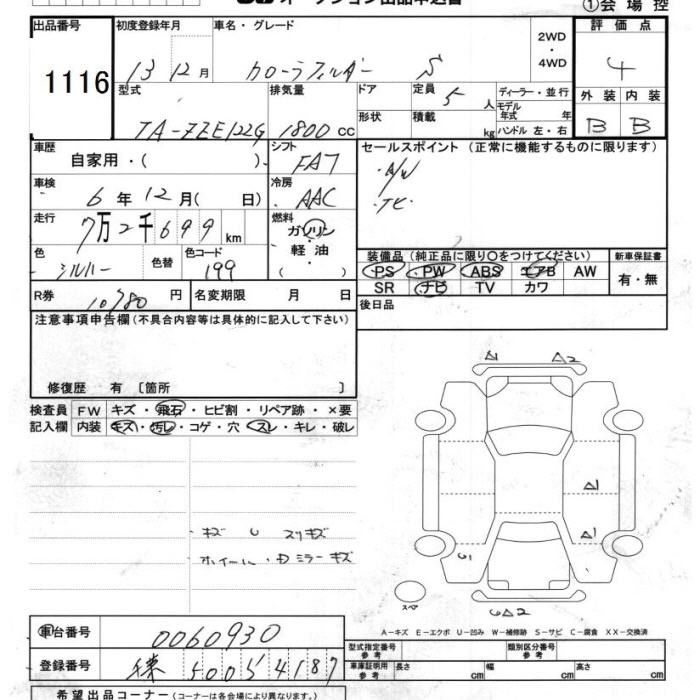 ①会場控
出品番号 初度登録年月 車名・グレード 2WD ・ 4WD 評価点
1116 13 12月 カローラフィルダー S 4
型式 排気量 ドア 定員 5人 ディーラー・並行 外装 内装
TA-ZZE122G 1800cc 形状 積載 kg モデル年式 年 ハンドル 左・右 B B
車歴 自家用・( ) シフト FAT セールスポイント (正常に機能するものに限ります)
車検 6年12月( 日) 冷房 AAC ・A/W
走行 7万2千699km 燃料 ガソリン・軽油・( ) ・TV
色 シルバー 色替 色コード 199 装備品(純正品に限り○をつけてください) 新車保証書
PS PW ABS エアB AW 有・無
R券 10780円 名変期限 月 日 SR ナビ TV カワ
注意事項申告欄(不具合内容等は具体的に記入して下さい) 後日品
修復歴 有〔箇所 〕
A1 A2
検査員 FW キズ・飛石・ヒビ割・リペア跡・×要
記入欄 内装 キズ・汚レ・コゲ・穴・スレ・キレ・破レ
A1
A1
キズ U スリキズ
ホイール・ドミラーキズ
スペア
A-キズ E-エクボ U-凹み W-補修跡 S-サビ C-腐食 XX-交換済
車台番号 0060930
型式指定番号 参考 類別区分番号 参考
登録番号 5005 4187
車庫証明用 参考 長さ cm 幅 cm 高さ cm
希望出品コーナー(コーナーは各会場により異なります。)